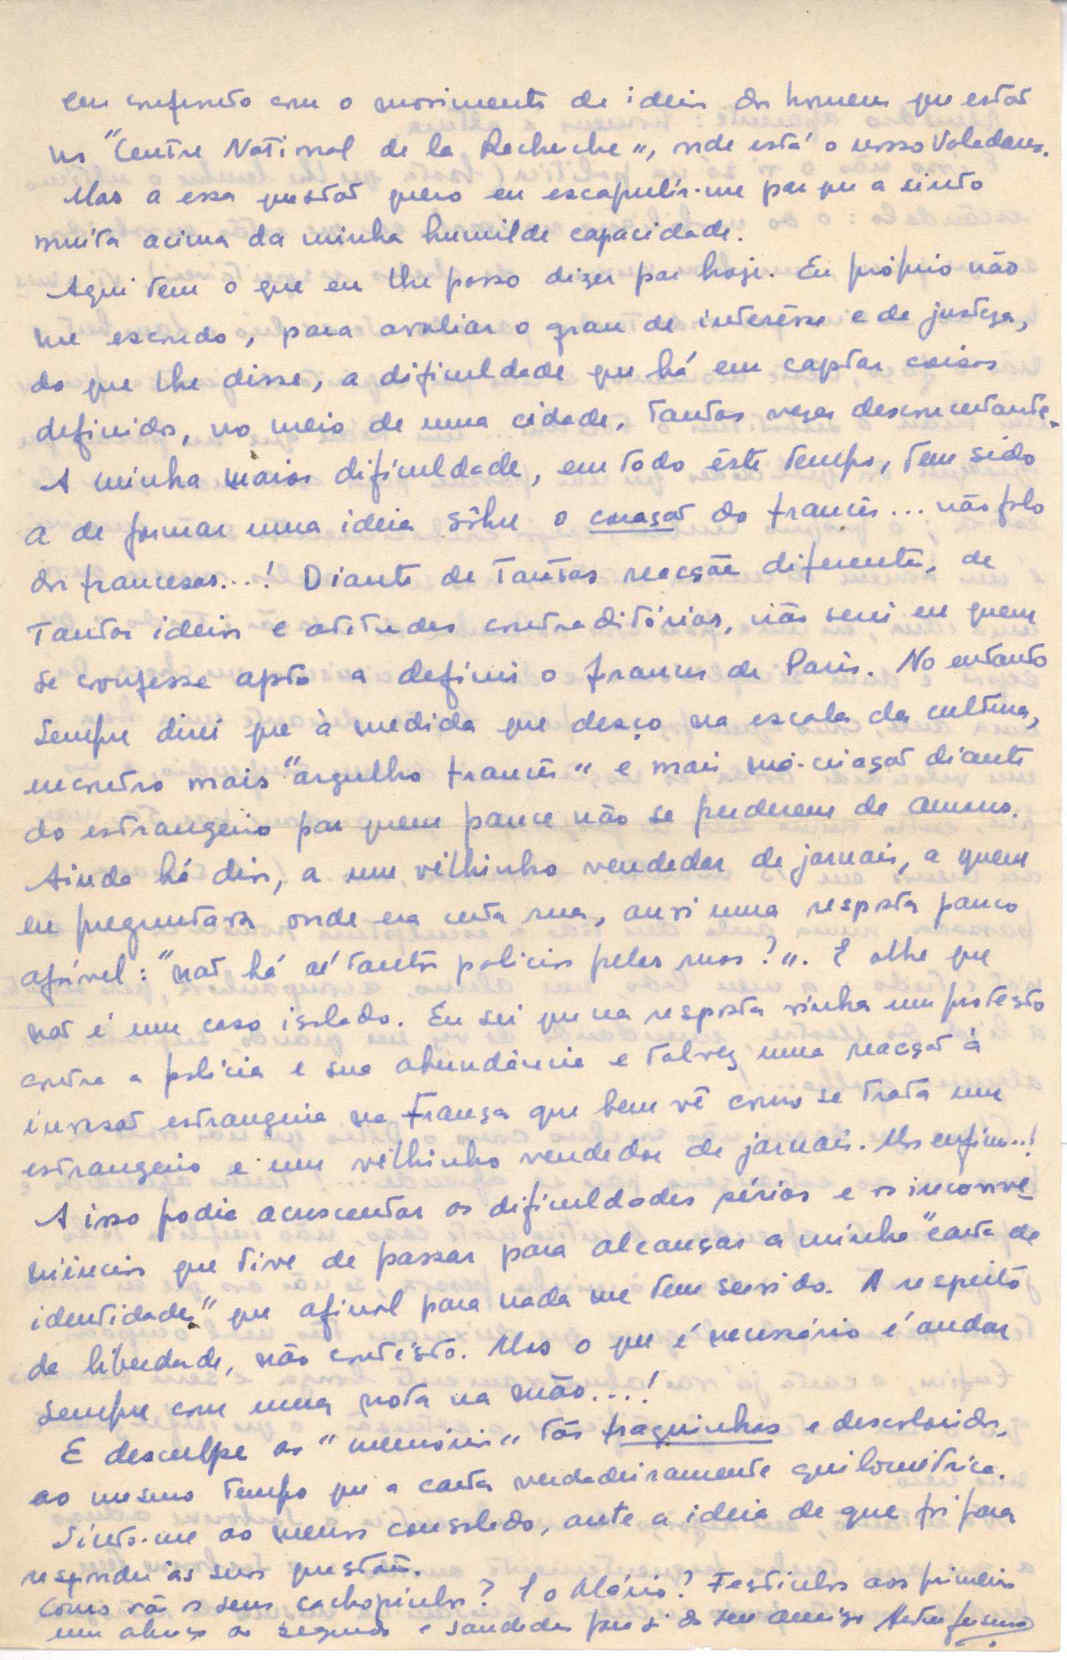 em confronto com o movimento de ideias dos homens que estão
no "Centre National de la Recherche", onde está o nosso Valadares.
Mas a essa questão quero eu escapulir-me porque a sinto
muito acima da minha humilde capacidade.
Aqui tem o que eu lhe posso dizer por hoje. Eu próprio não
me escondo, para avaliar o grau de interêsse e de justeza,
do que lhe disse, a dificuldade que há em captar coisas
definidas, no meio de uma cidade, tantas vezes desconcertante.
A minha maior dificuldade, em todo êste tempo, tem sido
a de formar uma ideia sôbre o coração do francês... não falo
das francesas...! Diante de tantas reacções diferentes, de
tantas ideias e atitudes contraditórias, não sei eu quem
se confesse apto a definir o francês de Paris. No entanto
sempre direi que à medida que desço na escala da cultura,
encontro mais "orgulho francês" e mais má-criação diante
do estrangeiro por quem parece não se perderem de amores.
Ainda há dias, a um vélhinho vendedor de jornais, a quem
eu preguntara onde era certa rua, ouvi uma resposta pouco
afável: "não há aí tantos policias pelas ruas?". E olhe que
não é um caso isolado. Eu sei que na resposta vinha um protesto
contra a polícia e sua abundância e talvez uma reacção à
invasão estrangeira na França que bem vê como se trata um
estrangeiro e um vélhinho vendedor de jornais. Mas enfim..!
A isso podia acrescentar as dificuldades sérias e os inconve-
niências que tive de passar para alcançar a minha "carta de
identidade" que afinal para nada me tem servido. A respeito
de liberdade, não contesto. Mas o que é necessário é andar
sempre com uma nota na mão...!
E desculpe as "memórias" tão fraquinhas e descoloridas,
ao mesmo tempo que a carta verdadeiramente quilométrica.
Sinto-me ao menos consolado, ante a ideia de que foi para
responder às suas questões.
Como vão os seus cachopinhos? E o Mário? Festinhas aos primeiros
um abraço ao segundo e saudades para si do seu amigo